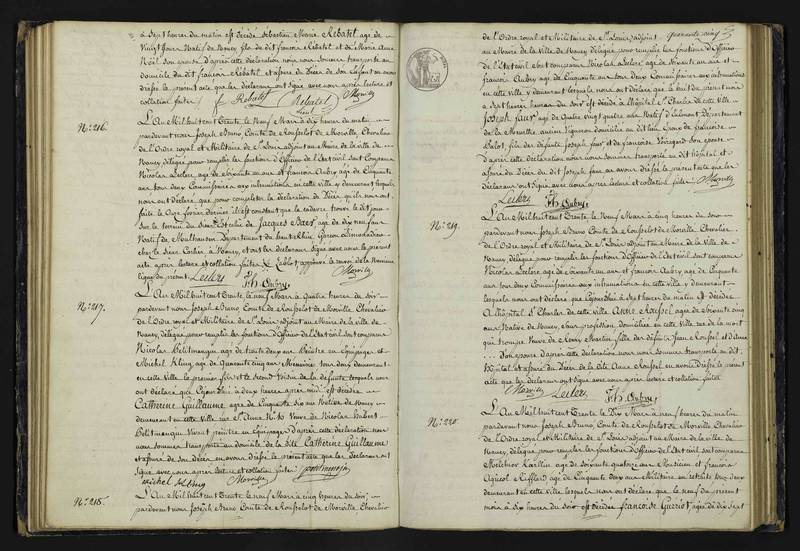 à Sept heures du matin est décédé Sébastien Marie Rebatel agé de
Vingt Jours Natif de Nancy, fils du dit françois Rebatel et de Marie Anne
Noël son épouse d'après cette déclaration nous nous sommes transporté au
domicile du dit françois Rebatel et assuré du Décès de son Enfant en avons
dressé le présent acte que les déclarants ont Signé avec nous après lecture et
collation faites f. Rebatel Rebatel Morville
N.° 216.
L'An Mil huit cent Trente le Neuf Mars à dix heures du matin
pardevant nous Joseph Bruno Comte de Rousselot de Morville, Chevalier
de l'Ordre royal et Militaire de S.t Louis adjoint au Maire de la ville de
Nancy délégué pour remplir les fonctions d'Officier de l'Etat civil sont Comparus
Nicolas Leclerc agé de soixante un ans et françois Aubry agé de Cinquante
ans tous deux Commissaires aux inhumations en cette ville y demeurant lesquels
nous ont déclaré que pour compléter la déclaration de Décès qu'ils nous ont
faite le Onze février dernier il est constant que le cadavre trouvé le dit jour
sur le terrein du Sieur est celui de Jacques Baer agé de dix neuf ans
Natif de Mulhausen Département du haut Rhin Garçon Limonadier
chez le Sieur à Nancy, et ont les déclarants Signé avec nous le présent
acte après lecture et collation faites
Leclerc fs. Aubry Morville
N.° 217.
L'An Mil huit cent Trente le neuf Mars à Quatre heures du soir
pardevant nous Joseph Bruno Comte de Rousselot de Morville, Chevalier
de l'Ordre royal et Militaire de S.t Louis adjoint au Maire de la ville de
Nancy, délégué pour remplir les fonctions d'Officier de l'Etat civil sont Comparus
Nicolas Petitmengin agé de trente deux ans Peintre en Equipages et
Michel Kling agé de Quarante cinq ans Menuisier tous deux demeurant
en cette Ville le premier fils et le second Voisin de la défunte lesquels nous
ont déclaré que Cejourd'hui à deux heures après midi est décédée
Catherine Guillaume agée de Cinquante six ans Native de Nancy
demeurant en cette Ville Veuve de Nicolas Hubert
Petitmengin Vivant peintre en Equipages d'après cette déclaration nous
nous sommes transporté au domicile de la dite Catherine Guillaume
et assuré de son Décès en avons dressé le présent acte que les déclarants ont
Signé avec nous après lecture et collation faites petitmengin
Michel Kling Morville
N.° 218.
L'An Mil huit cent Trente le neuf Mars à Cinq heures du soir
pardevant nous Joseph Bruno Comte de Rousselot de Morville, Chevalier
quarante cinq
de l'Ordre royal et Militaire de S.t Louis adjoint
au Maire de la Ville de Nancy délégué pour remplir les fonctions d'Officier
de l'Etat civil sont comparus Nicolas Leclerc agé de soixante un ans et
françois Aubry agé de Cinquante ans tous deux Commissaires aux inhumations
en cette ville y demeurant lesquels nous ont déclaré que le huit du présent mois
à Sept heures du soir est décédé à l'hôpital S.t Charles de cette Ville
Joseph faus agé de Quatre vingt quatre ans Natif d'
de la Meurthe ancien domicilié au dit lieu Epoux de françoise
fils des défunts Joseph faus et de françoise son épouse
d'après cette déclaration nous nous sommes transporté au dit hôpital et
assuré du Décès du dit Joseph faus en avons dressé le présent acte que les
déclarants ont Signé avec nous après lecture et collation faites Morville
Leclerc fs. Aubry
N.° 219.
L'An Mil huit cent Trente, le neuf Mars à Cinq heures du soir
pardevant nous Joseph Bruno Comte de Rousselot de Morville, Chevalier
de l'Ordre royal et Militaire de S.t Louis adjoint au Maire de la Ville de
Nancy, délégué pour remplir les fonctions d'Officier de l'Etat civil sont comparus
Nicolas Leclerc agé de soixante un ans et françois Aubry agé de Cinquante
ans tous deux Commissaires aux inhumations en cette ville y demeurant
lesquels nous ont déclaré que Cejourd'hui à Sept heures du matin est décédée
à l'hôpital S.t Charles de cette ville Anne Roussel agée de soixante cinq
ans Native de Nancy, sans profession domiciliée en cette Ville
Veuve de Henry Martin fille des défunts Jean Roussel et
son épouse d'après cette déclaration nous nous sommes transporté au dit
hôpital et assuré du Décès de la dite Anne Roussel en avons dressé le présent
acte que les déclarants ont Signé avec nous après lecture et collation faites
Morville Leclerc fs. Aubry
N.° 220.
L'An Mil huit cent Trente le Dix Mars à neuf heures du matin
pardevant nous Joseph Bruno, Comte de Rousselot de Morville Chevalier
de l'Ordre royal et Militaire de S.t Louis adjoint au Maire de la ville de
Nancy, délégué pour remplir les fonctions d'Officier de l'Etat civil sont comparus
Melchior agé de soixante quatre ans Musicien et françois
agé de Cinquante deux ans Militaire en retraite tous deux
demeurant en cette ville lesquels nous ont déclaré que le neuf du présent
mois à dix heures du soir est décédée françoise Guerriot, agée de dix sept